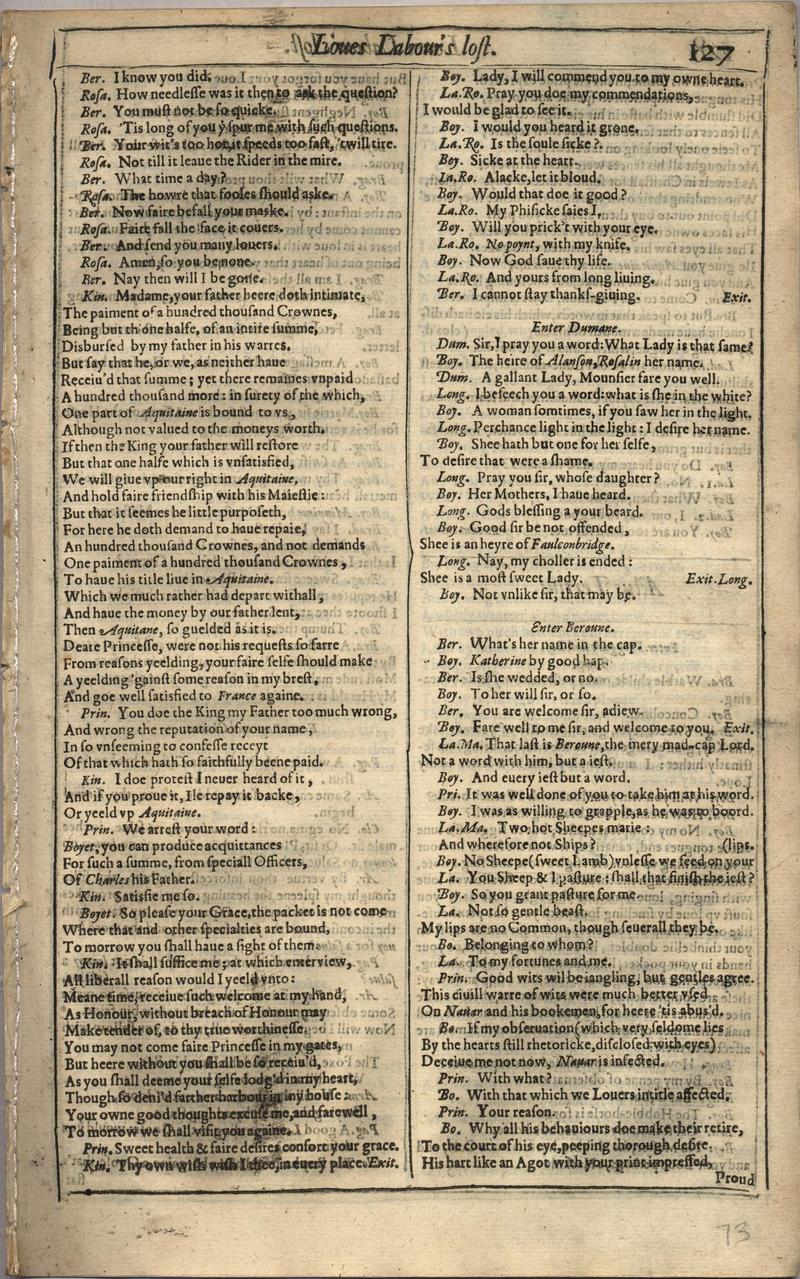 Loues Labour's lost. 127
Ber. I know you did.
Rosa. How needlesse was it then to ask the question?
Ber. You must not be so quicke.
Rosa. 'Tis long of you ẏ spur me with such questions.
Ber. Your wit's too hot, it speeds too fast, 'twill tire.
Rosa. Not till it leaue the Rider in the mire.
Ber. What time a day?
Rosa. The howre that fooles should aske.
Ber. Now faire befall your maske.
Rosa. Faire fall the face it couers.
Ber. And send you many louers.
Rosa. Amen, so you be none.
Ber. Nay then will I be gone.
Kin. Madame, your father heere doth intimate,
The paiment of a hundred thousand Crownes,
Being but th'one halfe, of an intire summe,
Disbursed by my father in his warres.
But say that he, or we, as neither haue
Receiu'd that summe; yet there remaines vnpaid
A hundred thousand more: in surety of the which,
One part of Aquitaine is bound to vs,
Although not valued to the moneys worth.
If then the King your father will restore
But that one halfe which is vnsatisfied,
We will giue vp our right in Aquitaine,
And hold faire friendship with his Maiestie:
But that it seemes he little purposeth,
For here he doth demand to haue repaie,
An hundred thousand Crownes, and not demands
One paiment of a hundred thousand Crownes,
To haue his title liue in Aquitaine.
Which we much rather had depart withall,
And haue the money by our father lent,
Then Aquitane, so guelded as it is.
Deare Princesse, were not his requests so farre
From reasons yeelding, your faire selfe should make
A yeelding 'gainst some reason in my brest,
And goe well satisfied to France againe.
Prin. You doe the King my Father too much wrong,
And wrong the reputation of your name,
In so vnseeming to confesse receyt
Of that which hath so faithfully beene paid.
Kin. I doe protest I neuer heard of it,
And if you proue it, Ile repay it backe,
Or yeeld vp Aquitaine.
Prin. We arrest your word:
Boyet, you can produce acquittances
For such a summe, from speciall Officers,
Of Charles his Father.
Kin. Satisfie me so.
Boyet. So please your Grace, the packet is not come
Where that and other specialties are bound,
To morrow you shall haue a sight of them.
Kin. It shall suffice me; at which enterview,
All liberall reason would I yeeld vnto:
Meane time, receiue such welcome at my hand,
As Honour, without breach of Honour may
Make tender of, to thy true worthinesse.
You may not come faire Princesse in my gates,
But heere without you shall be so receiu'd,
As you shall deeme your selfe lodg'd in my heart,
Though so deni'd farther harbour in my house:
Your owne good thoughts excuse me, and farewell,
To morrow we shall visit you againe.
Prin. Sweet health & faire desires consort your grace.
Kin. Thy own wish wish I thee, in euery place. Exit.
Boy. Lady, I will commend you to my owne heart.
La.Ro. Pray you doe my commendations,
I would be glad to see it.
Boy. I would you heard it grone.
La.Ro. Is the soule sicke?
Boy. Sicke at the heart.
La.Ro. Alacke, let it bloud.
Boy. Would that doe it good?
La.Ro. My Phisicke saies I.
Boy. Will you prick't with your eye.
La.Ro. No poynt, with my knife.
Boy. Now God saue thy life.
La.Ro. And yours from long liuing.
Ber. I cannot stay thanks-giuing. Exit.
Enter Dumane.
Dum. Sir, I pray you a word: What Lady is that same?
Boy. The heire of Alanson, Rosalin her name.
Dum. A gallant Lady, Mounsier fare you well.
Long. I beseech you a word: what is she in the white?
Boy. A woman somtimes, if you saw her in the light.
Long. Perchance light in the light: I desire her name.
Boy. Shee hath but one for her selfe,
To desire that were a shame.
Long. Pray you sir, whose daughter?
Boy. Her Mothers, I haue heard.
Long. Gods blessing a your beard.
Boy. Good sir be not offended,
Shee is an heyre of Faulconbridge.
Long. Nay, my choller is ended:
Shee is a most sweet Lady. Exit. Long.
Boy. Not vnlike sir, that may be.
Enter Beroune.
Ber. What's her name in the cap.
Boy. Katherine by good hap.
Ber. Is she wedded, or no.
Boy. To her will sir, or so.
Ber. You are welcome sir, adiew.
Boy. Fare well to me sir, and welcome to you. Exit.
La.Ma. That last is Beroune, the mery mad-cap Lord.
Not a word with him, but a iest.
Boy. And euery iest but a word.
Pri. It was well done of you to take him at his word.
Boy. I was as willing to grapple, as he was to boord.
La.Ma. Two hot Sheepes marie:
And wherefore not Ships? (lips.
Boy. No Sheepe (sweet Lamb) vnlesse we feed on your
La. You Sheep & I pasture: shall that finish the iest?
Boy. So you grant pasture for me.
La. Not so gentle beast.
My lips are no Common, though seuerall they be.
Bo. Belonging to whom?
La. To my fortunes and me.
Prin. Good wits wil be iangling, but gentles agree.
This ciuill warre of wits were much better vsed
On Nauar and his bookemen, for heere 'tis abus'd.
Bo. If my obseruation (which very seldome lies
By the hearts still rhetoricke, disclosed with eyes)
Deceiue me not now, Nauar is infected.
Prin. With what?
Bo. With that which we Louers intitle affected.
Prin. Your reason.
Bo. Why all his behauiours doe make their retire,
To the court of his eye, peeping thorough desire.
His hart like an Agot with your print impressed,
Proud
73